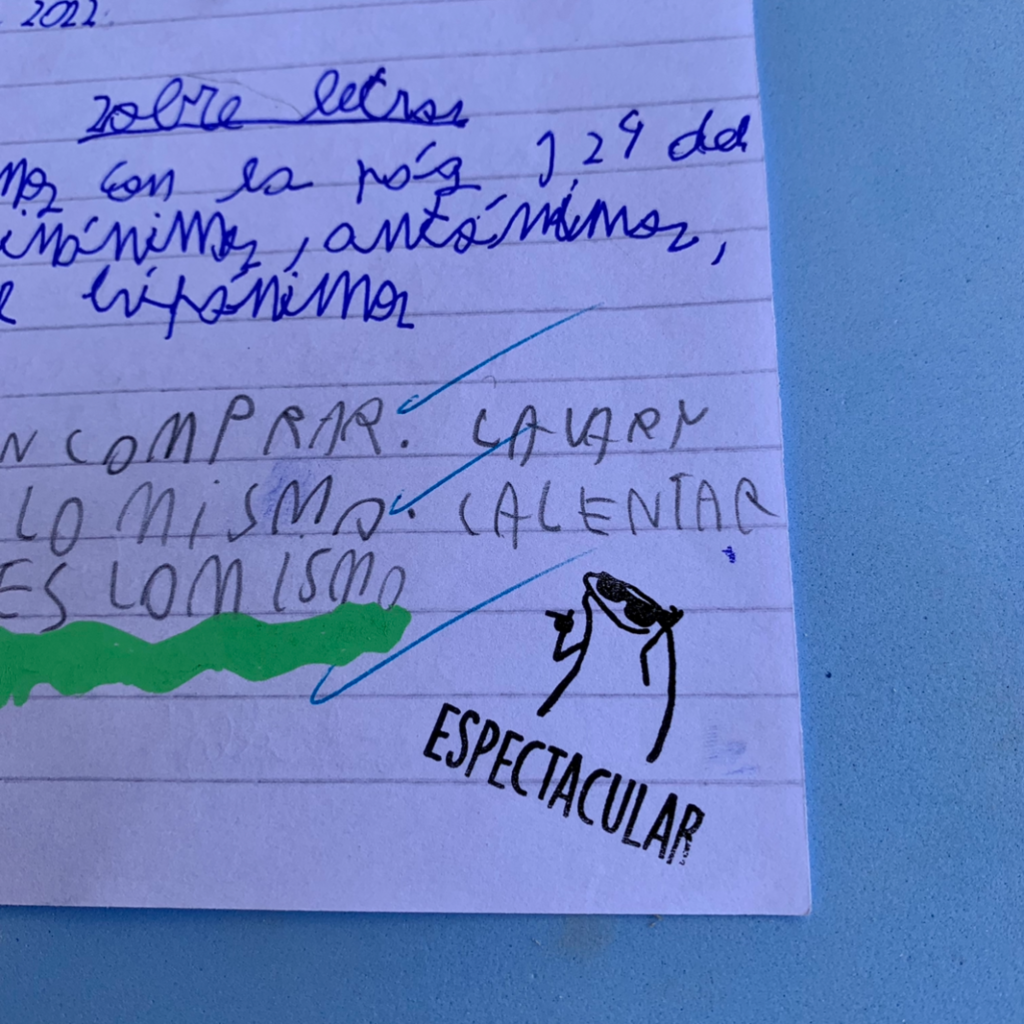 2022.
sobre letras
con la pág 129 del
sinónimos, antónimos,
e hipónimos
N COMPRAR. LAVAR Y
LO MISMO. CALENTAR
ES LO MISMO
ESPECTACULAR